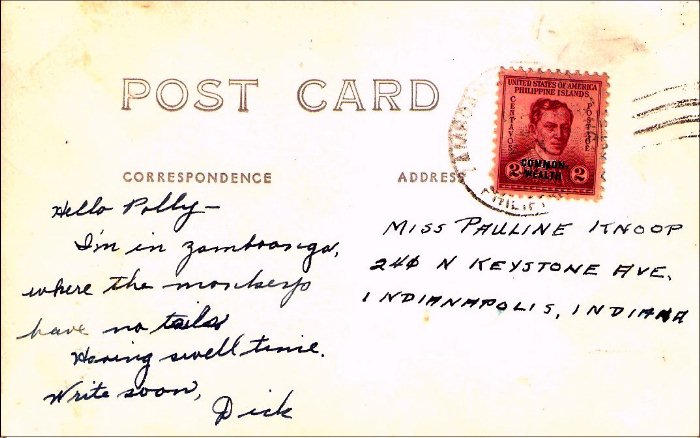 POST CARD
UNITED STATES OF AMERICA
PHILIPPINE ISLANDS
CENTAVOS
POSTAGE
2 COMMON- 2
WEALTH
CORRESPONDENCE
ADDRESS
Hello Polly—
I'm in Zamboanga,
where the monkeys
have no tails
Having swell time.
Write soon,
Dick
MISS PAULINE KNOOP
240 N KEYSTONE AVE.
INDIANAPOLIS, INDIANA